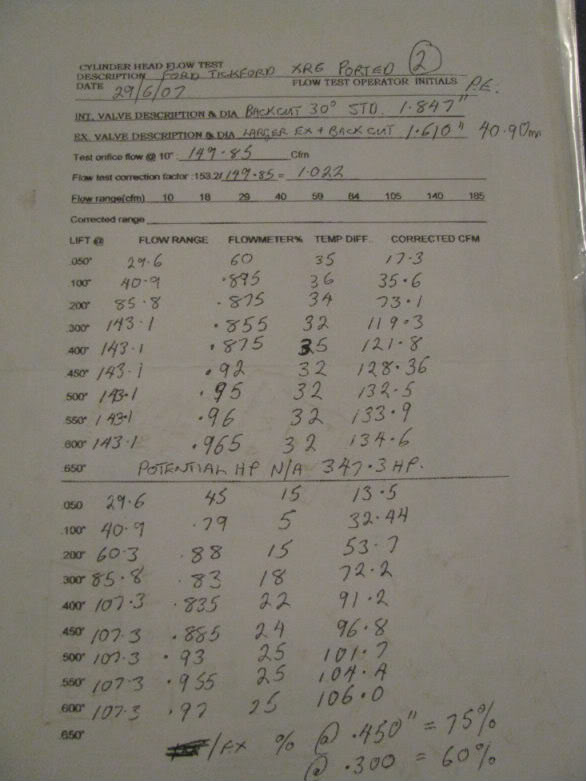 CYLINDER HEAD FLOW TEST
DESCRIPTION FORD TICKFORD XR6 PORTED 2
DATE 29/6/07 FLOW TEST OPERATOR INITIALS P.E.
INT. VALVE DESCRIPTION & DIA BACKCUT 30° STD. 1.847"
EX. VALVE DESCRIPTION & DIA LARGER EX + BACK CUT 1.610" 40.90mm
Test orifice flow @ 10" 149.85 Cfm
Flow test correction factor :153.2/ 149.85 = 1.022
Flow range(cfm) 10 18 29 40 59 84 105 140 185
Corrected range
LIFT @ FLOW RANGE FLOWMETER% TEMP DIFF. CORRECTED CFM
.050" 29.6 60 35 17.3
.100" 40.9 .895 36 35.6
.200" 85.8 .875 34 73.1
.300" 143.1 .855 32 119.3
.400" 143.1 .875 35 121.8
.450" 143.1 .92 32 128.36
.500" 143.1 .95 32 132.5
.550" 143.1 .96 32 133.9
.600" 143.1 .965 32 134.6
.650" POTENTIAL HP N/A 347.3 HP.
.050 29.6 45 15 13.5
.100" 40.9 .79 5 32.44
.200" 60.3 .88 15 53.7
.300" 85.8 .83 18 72.2
.400" 107.3 .835 22 91.2
.450" 107.3 .885 24 96.8
.500" 107.3 .93 25 101.7
.550" 107.3 .955 25 104.4
.600" 107.3 .97 25 106.0
.650" /EX % @ .450" = 75%
@ .300 = 60%